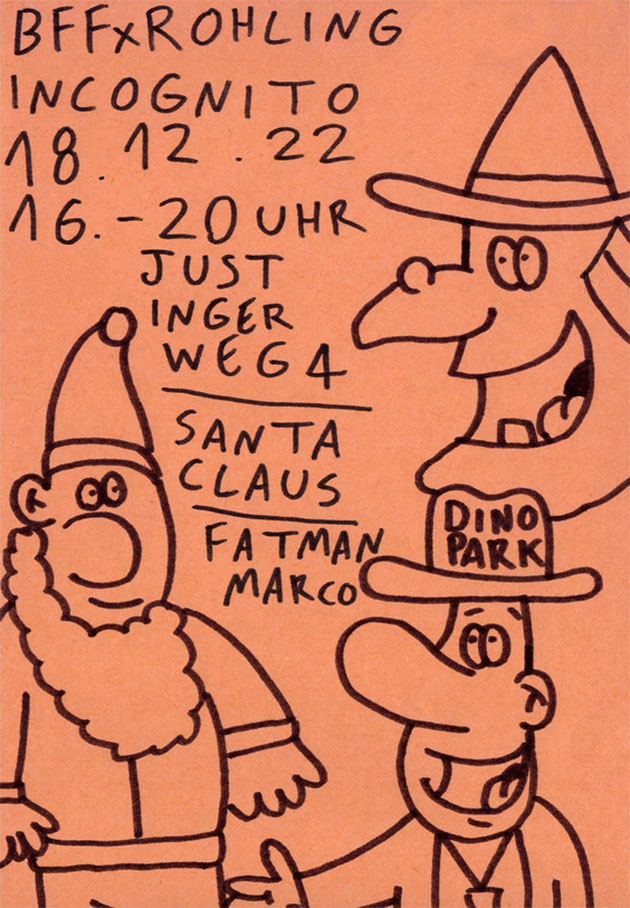 BFFxROHLING
INCOGNITO
18.12.22
16.-20 UHR
JUST
INGER
WEG 4
SANTA
CLAUS
FATMAN
MARCO
DINO
PARK